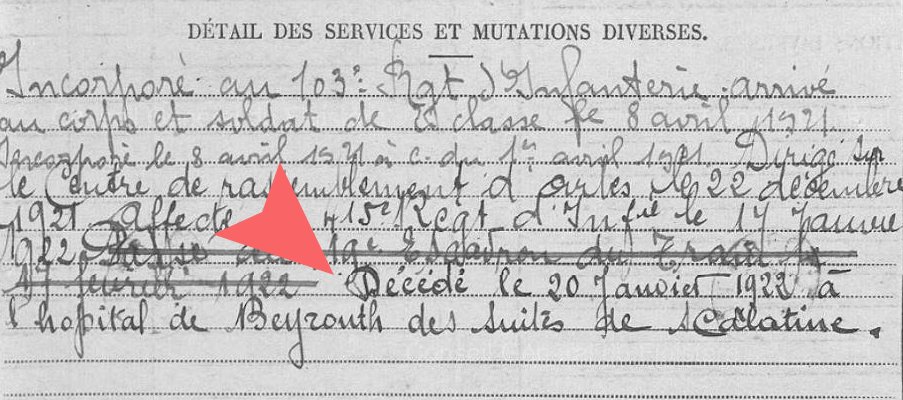 DÉTAIL DES SERVICES ET MUTATIONS DIVERSES.
Incorporé au 103e Rgt d'Infanterie. arrivé
au corps et soldat de 2e classe le 8 avril 1921.
Incorporé le 8 avril 1921 à c. du 1er avril 1921 Dirigé sur
le Centre de rassemblement d'Arles le 22 décembre
1921 Affecté 415e Régt d'Infrie le 17 Janvier
1922. Passé au 19e Escadron du Train le
17 février 1922 Décédé le 20 Janvier 1922 à
l'hopital de Beyrouth des suites de scalatine.